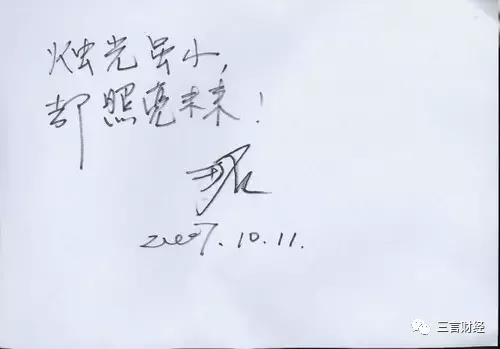 烛光虽小,
却照亮未来!
2007.10.11.
三言财经